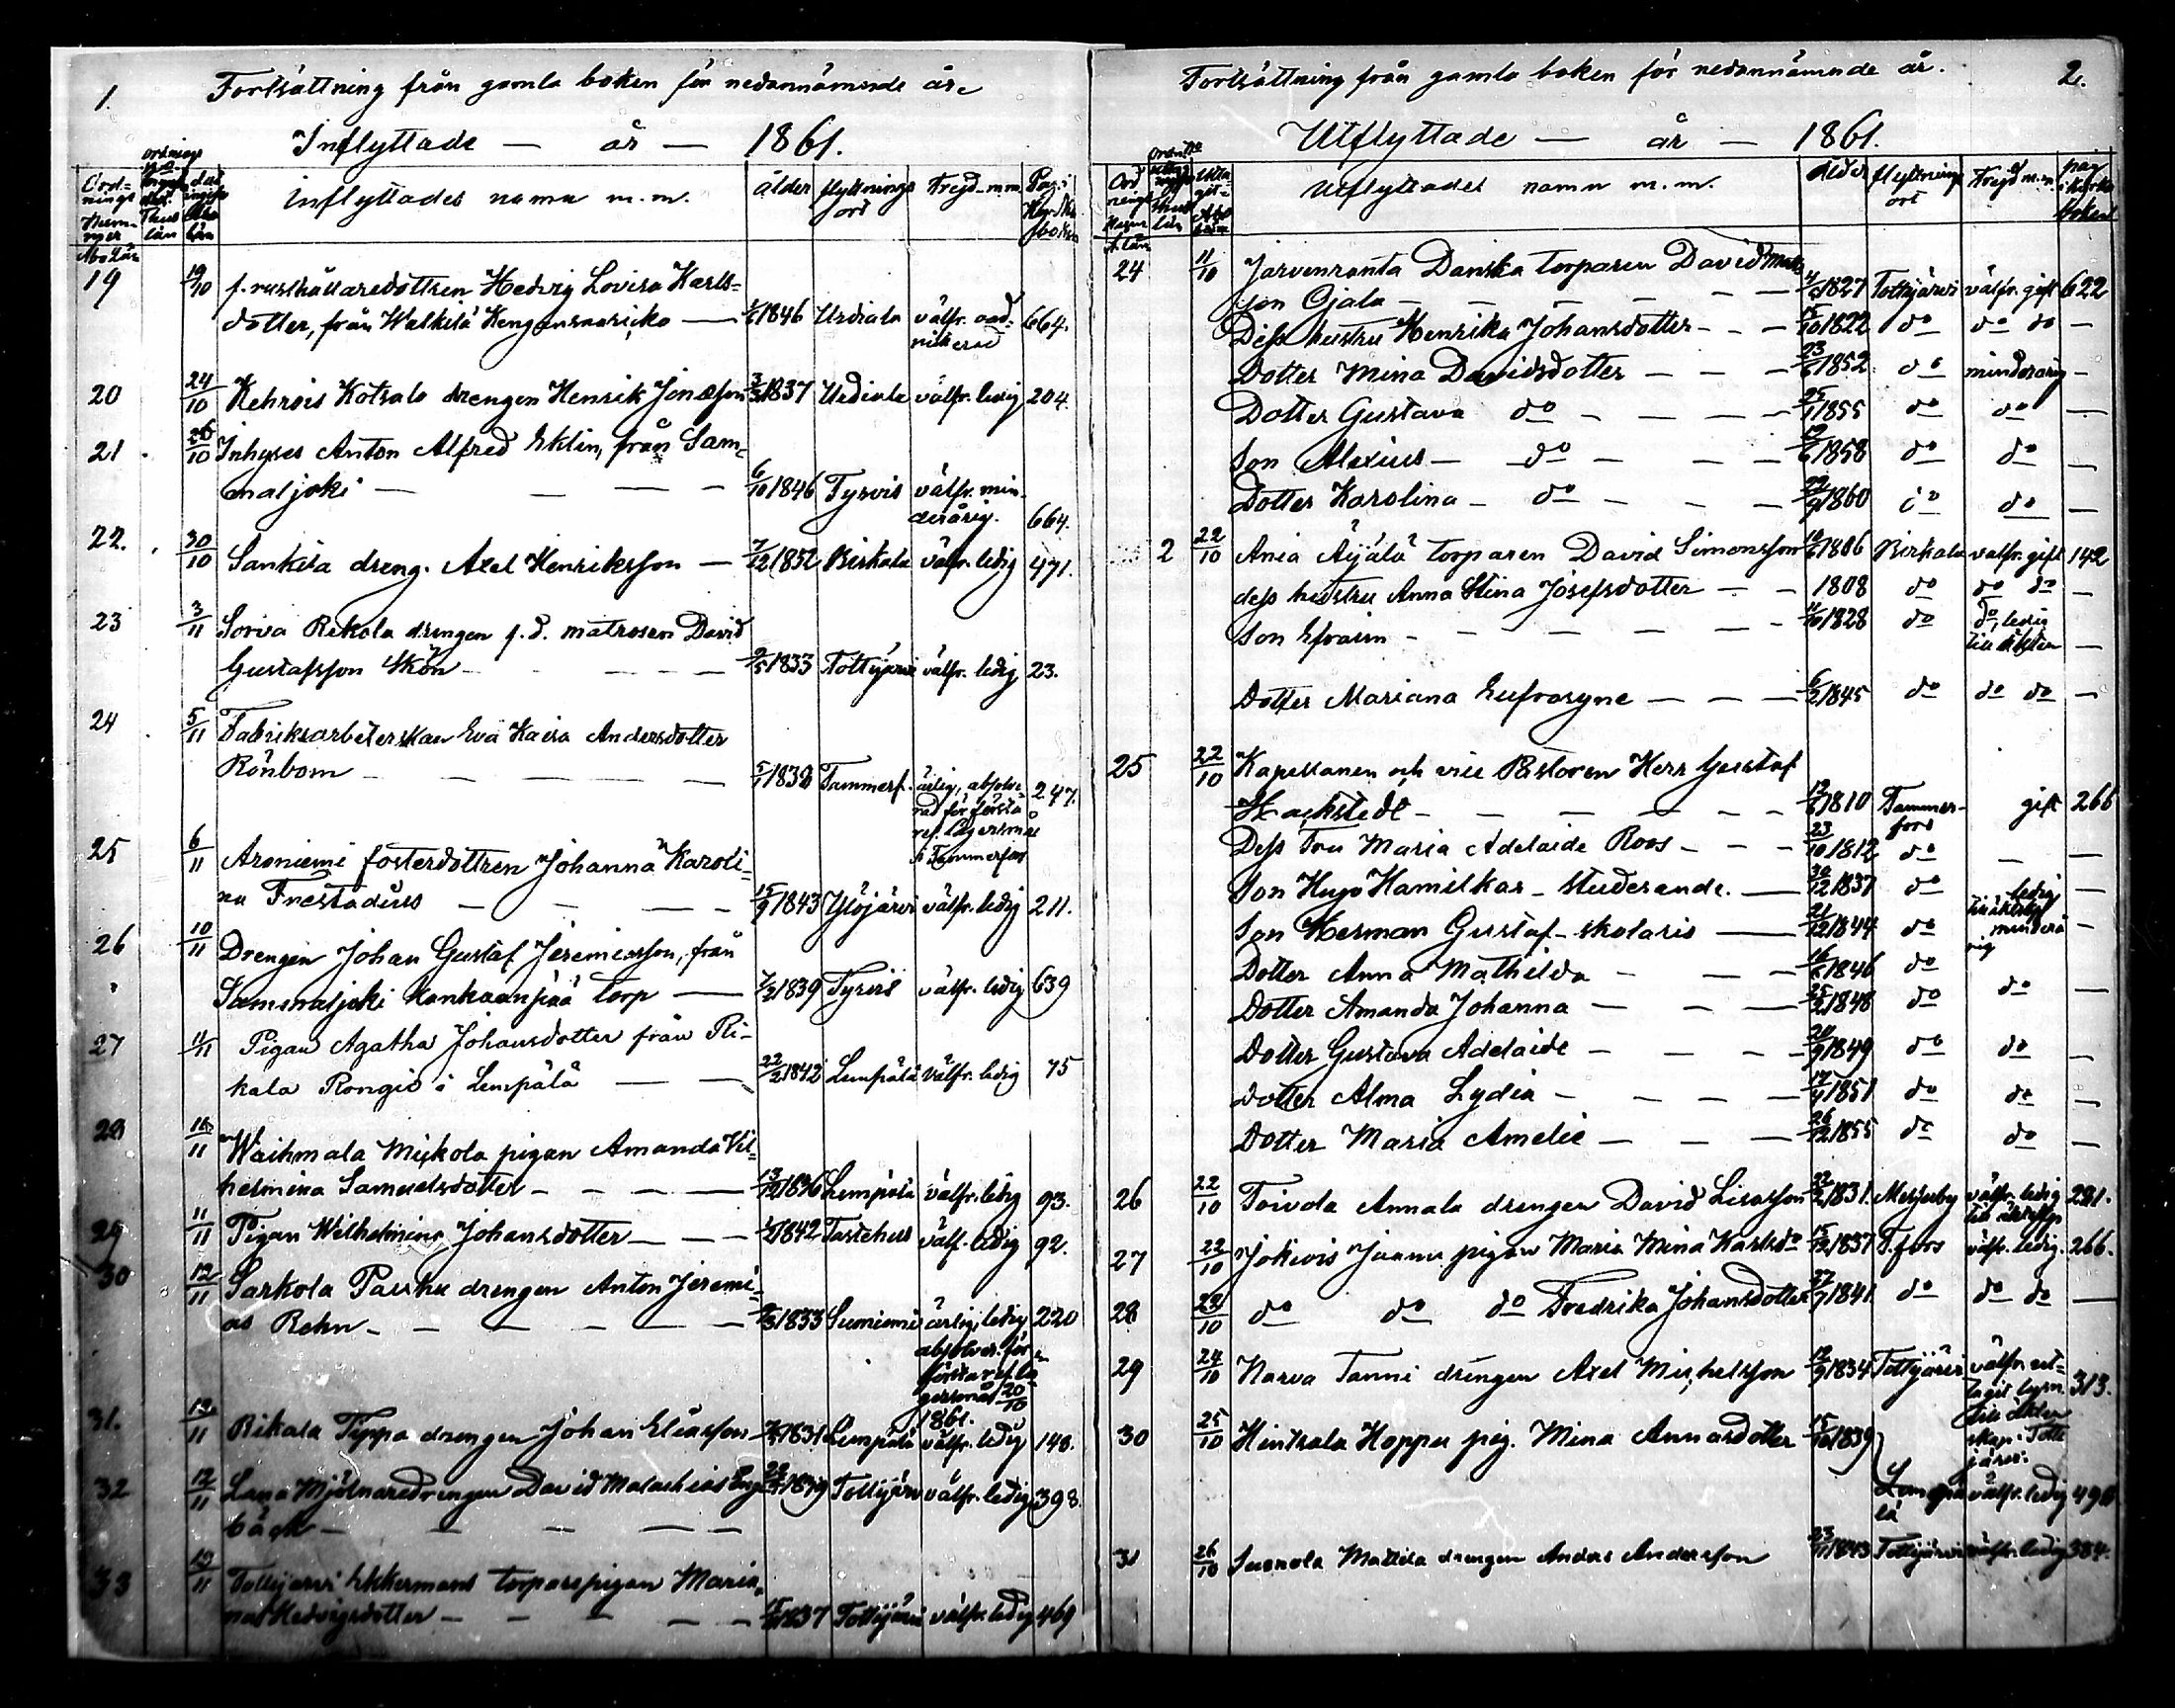 1.
Fortsättning från gamla boken för nedannämnde år.
Inflyttade — år — 1861.
Inflyttades namn m.m. ålder flyttnings ort Frejd m.m. Pag. i
19 19/10 f. rusthållaredottren Hedvig Lovisa Karls-
dotter, från Walkila — 1846 Urdiala välfr. 664.
20 24/10 Kehrois Kotsalo drengen Henrik Jonasson 1837 Urdiala välfr. ledig 204.
21 26/10 Inhyses Anton Alfred Eklin, från Sam-
maljoki — — — 6/10 1846 Tyrvis välfr. min-
derårig. 664.
22. 30/10 Sankila dreng. Axel Henriksson — 7/12 1852 Birkala välfr. ledig 471.
23 3/11 Sorva Rekola drengen f.d. matrosen David
Gustafsson Skön — — — 9/5 1833 Tottijärvi välfr. ledig 23.
24 5/11 Fabriksarbeterskan Eva Kaisa Andersdotter
Rönbom — — — — Tammerf. ärlig, absolve-
rad för första 247.
lägersmål
i Tammerfors
25 6/11 Aroniemi fosterdottren Johanna Karoli-
na — — 15/9 1843 Ylöjärvi välfr. ledig 211.
26 10/11 Drengen Johan Gustaf Jeremiasson, från
Sammaljoki Kankaanpää torp — 7/2 1839 Tyrvis välfr. ledig 639
27 11/11 Pigan Agatha Johansdotter från Pli-
kala Rongis i Lempälä — — 22/2 1842 Lempälä välfr. ledig 75
28 /11 Waihmala Mickola pigan Amanda Vil-
helmina Samuelsdotter — — — 13/12 1836 Lempälä välfr. ledig 93.
29 11/11 Pigan Wilhelmina Johansdotter — — 1842 Tavtehus välf. ledig 92.
30 12/11 Sarkola Pauku drengen Anton Jeremi-
as Rehn — — — — 1833 Suoniemi ärlig, ledig 220
absolver. för
första
lägersmål 20/10
1861.
31. 12/11 Rikala Tippa drengen Johan Eliasson — 1831 Lempälä välfr. ledig 148.
32 12/11 Lana Mjölnaredrengen David Malachias Eng- Tottijärvi välfr. ledig 398.
bäck — — — —
33 12/11 Tottijärvi Ekkermans torparepigan Maria-
na Hedvigsdotter — — — 1837 Tottijärvi välfr. ledig 469
Fortsättning från gamla boken för nedannämnde år. 2.
Utflyttade — år — 1861.
Utflyttades namn m.m. ålder flyttnings ort Frejd m.m.
24 11/10 Jarvenranta Danska torparen David
son Ojala — — — 1827 Tottijärvi välfr. gift 622
Dess hustru Henrika Johansdotter — — 15/10 1822 do do do —
Dotter Mina Davidsdotter — — 1852 do minderårig —
Dotter Gustava do — — — 1855 do do —
Son Alexius — do — — — 1858 do do —
Dotter Karolina — do — — 22/9 1860 do do —
2 22/10 Ania Äijälä torparen David Simonsson 1806 Birkala välfr. gift 142
dess hustru Anna Stina Josefsdotter — — 1808 do do do —
Son Efraim — — — — 11/10 1828 do do, ledig
till äkten —
Dotter Mariana Eufrosyne — — — 6/2 1845 do do do —
25 22/10 Kapellanen och vice Pastoren Herr Gustaf
Hackstedt — — — — 1810 Tammer-
fors gift 266
Dess Fru Maria Adelaide Roos — — 23/10 1812 do — —
Son Hugo Hamilkar — Studerande. — 30/12 1837 do ledig —
Son Herman Gustaf — skolaris — 21/12 1844 do minderå-
rig —
Dotter Anna Mathilda — — 1846 do
Dotter Amanda Johanna — — 1848 do do —
Dotter Gustava Adelaide — — — 20/9 1849 do do —
Dotter Alma Lydia — — — 1851 do do —
Dotter Maria Amelie — — — 26/12 1855 do do —
26 22/10 Toivola Annala drengen David Lisasson 1831. välfr. ledig 221.
27 22/10 Jokivis Juanu pigan Maria Mina Karlsdr 1837 T.fors välfr. ledig. 266.
28 22/10 do do do Fredrika Johansdotter 1841 do do do —
29 24/10 Narva Tanni drengen Axel Michelsson 12/9 1834 Tottijärvi välfr. ut-
tagit lysn. 313.
till äkten-
skap i Totti-
järvi.
30 25/10 Hinkala Hoppu pig. Mina Annasdotter 15/10 1839
Lempä-
lä välfr. ledig
31 26/10 Suonola Mattila drengen Anders Andersson 1843 Tottijärvi välfr. ledig 384.